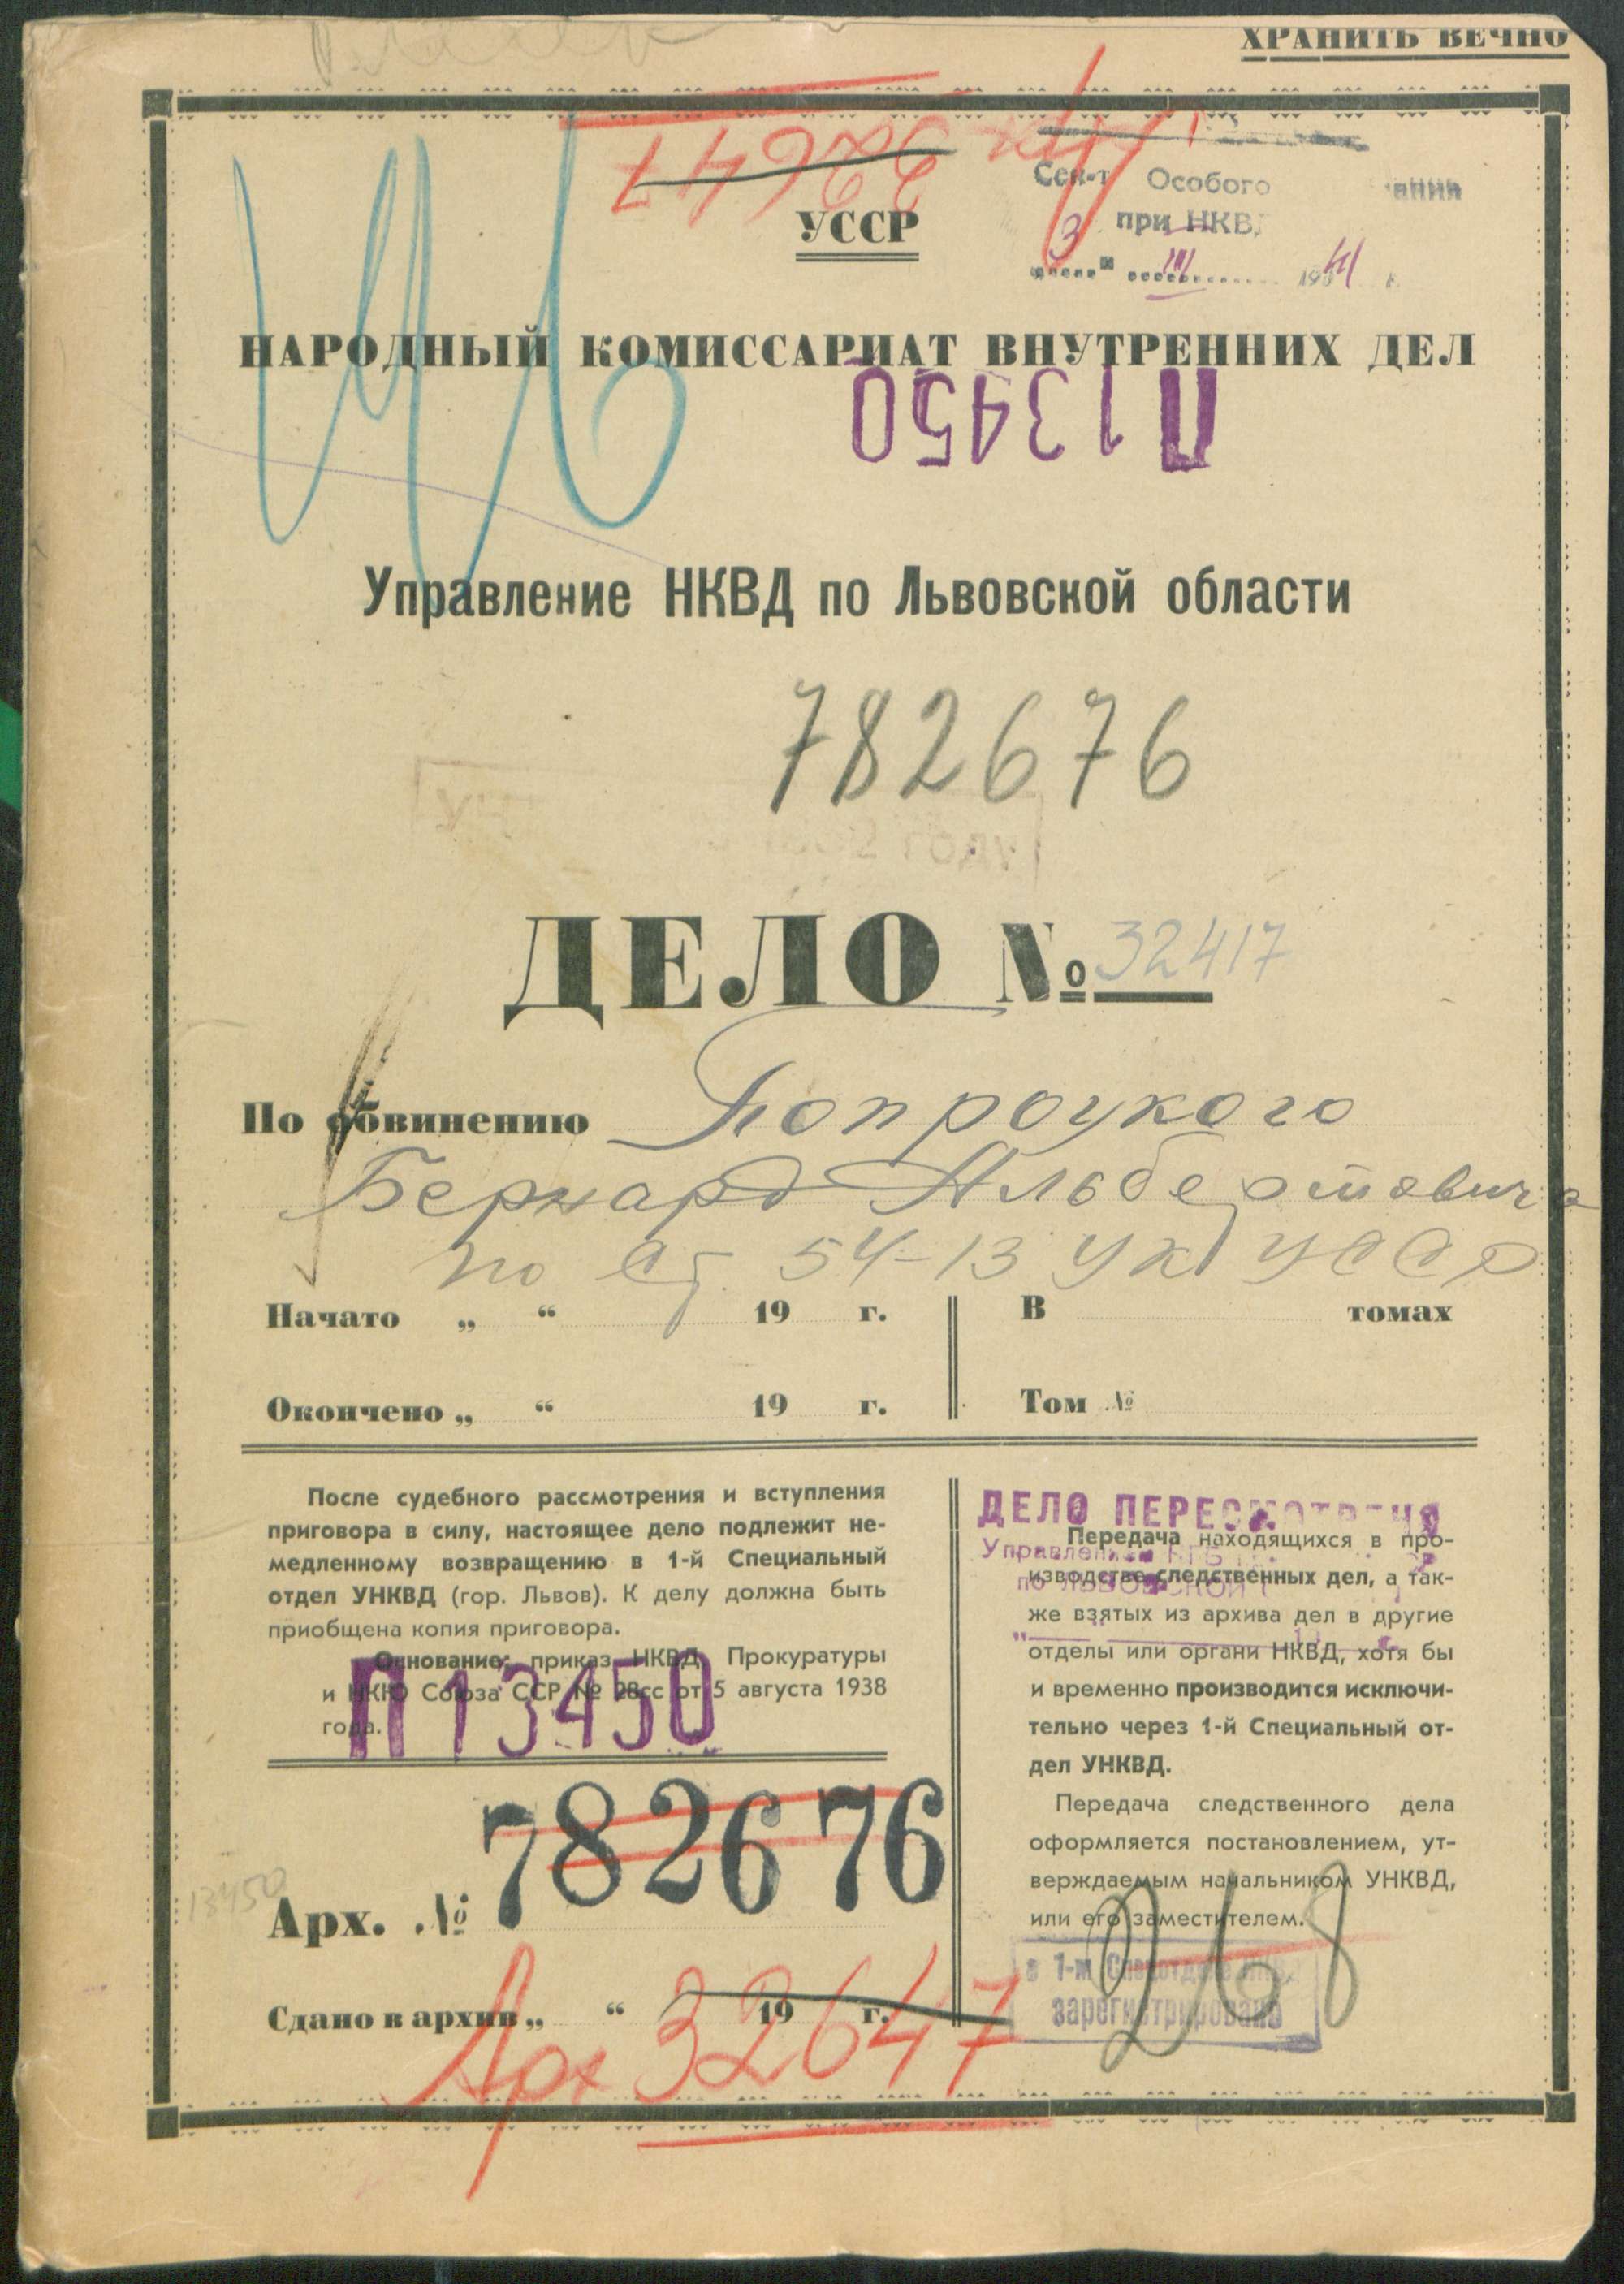 ХРАНИТЬ ВЕЧНО
Арх 32647
Сек-т Особого
при НКВ
3 III 1941
УССР
НАРОДНЫЙ КОМИССАРИАТ ВНУТРЕННИХ ДЕЛ
П13450
Управление НКВД по Львовской области
782676
ДЕЛО № 32417
По обвинению Попроцкого
Бернард Альбертовича
по ст. 54-13 УК УССР
Начато „ “ 19 г.
В томах
Окончено „ “ 19 г.
Том №
После судебного рассмотрения и вступления
приговора в силу, настоящее дело подлежит не-
медленному возвращению в 1-й Специальный
отдел УНКВД (гор. Львов). К делу должна быть
приобщена копия приговора.
Основание: приказ НКВД, Прокуратуры
и НКЮ Союза ССР № 28сс от 5 августа 1938
года.
П13450
ДЕЛО ПЕРЕСМОТРЕНО
Управлени
по ЛЬВОВСКОЙ
Передача находящихся в про-
изводстве следственных дел, а так-
же взятых из архива дел в другие
отделы или органи НКВД, хотя бы
и временно производится исключи-
тельно через 1-й Специальный от-
дел УНКВД.
Передача следственного дела
оформляется постановлением, ут-
верждаемым начальником УНКВД,
или его заместителем.
13450
Арх. № 782676
268
в 1-м Спецотделе
зарегистрировано
Сдано в архив „ “ 19 г.
Арх 32647